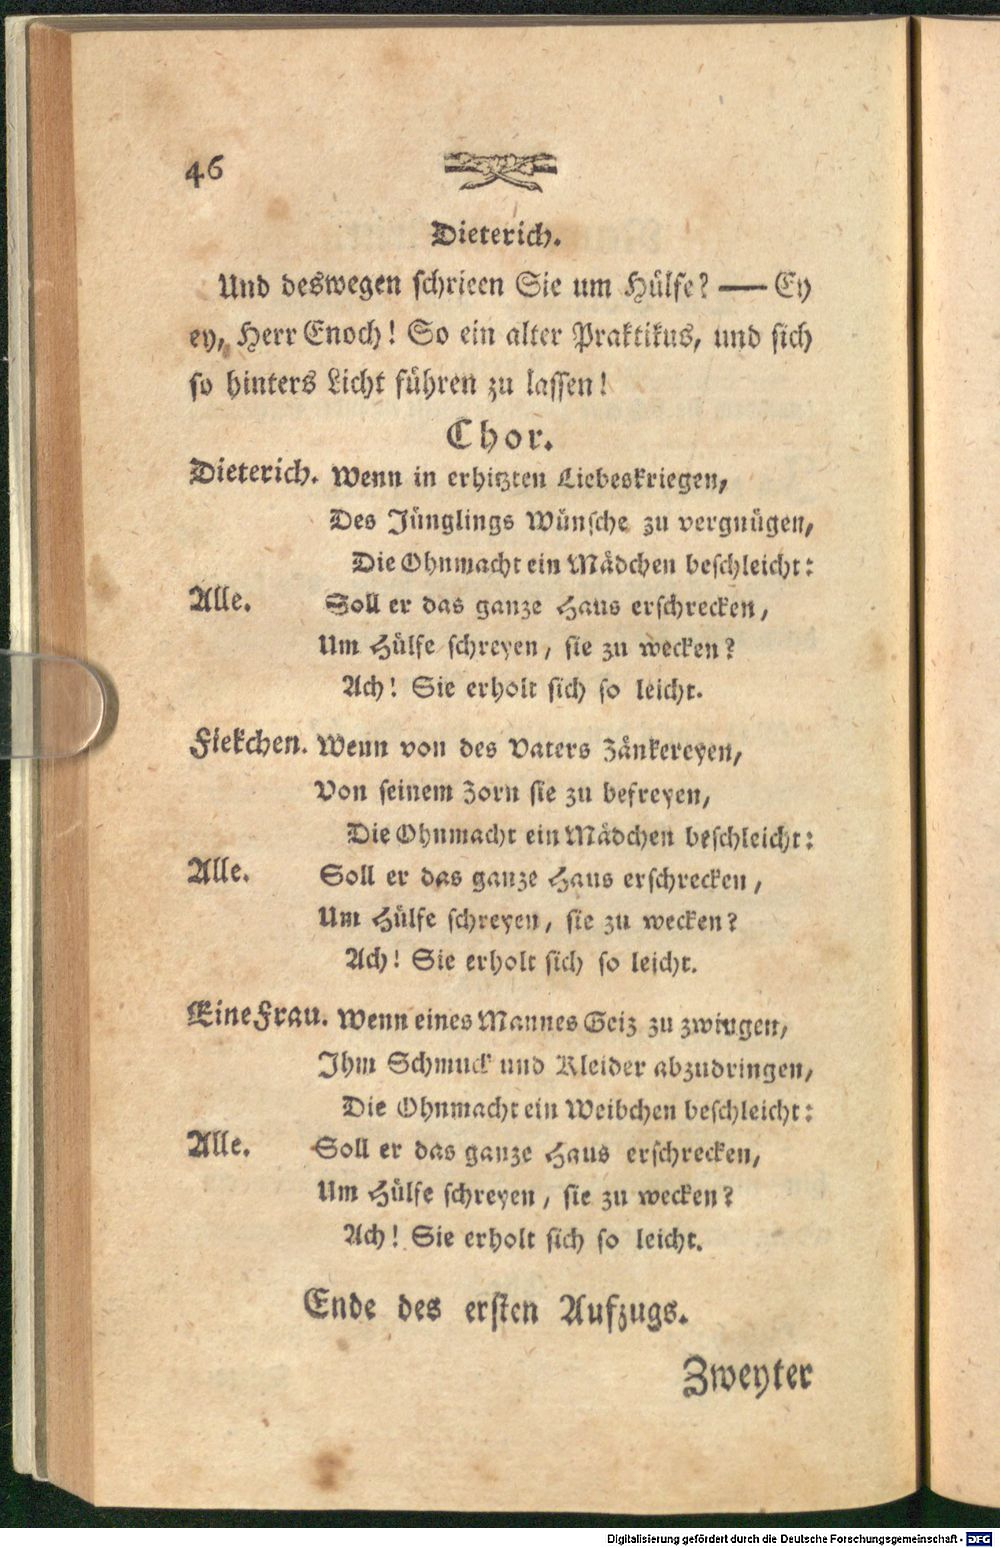 46
Dieterich.
Und deswegen schrieen Sie um Hülfe? — Ey
ey, Herr Enoch! So ein alter Praktikus, und sich
so hinters Licht führen zu lassen!
Chor.
Dieterich. Wenn in erhitzten Liebeskriegen,
Des Jünglings Wünsche zu vergnügen,
Die Ohnmacht ein Mädchen beschleicht:
Alle. Soll er das ganze Haus erschrecken,
Um Hülfe schreyen, sie zu wecken?
Ach! Sie erholt sich so leicht.
Fiekchen. Wenn von des Vaters Zänkereyen,
Von seinem Zorn sie zu befreyen,
Die Ohnmacht ein Mädchen beschleicht:
Alle. Soll er das ganze Haus erschrecken,
Um Hülfe schreyen, sie zu wecken?
Ach! Sie erholt sich so leicht.
Eine Frau. Wenn eines Mannes Geiz zu zwingen,
Ihm Schmuck und Kleider abzudringen,
Die Ohnmacht ein Weibchen beschleicht:
Alle. Soll er das ganze Haus erschrecken,
Um Hülfe schreyen, sie zu wecken?
Ach! Sie erholt sich so leicht.
Ende des ersten Aufzugs.
Zweyter
Digitalisierung gefördert durch die Deutsche Forschungsgemeinschaft - DFG